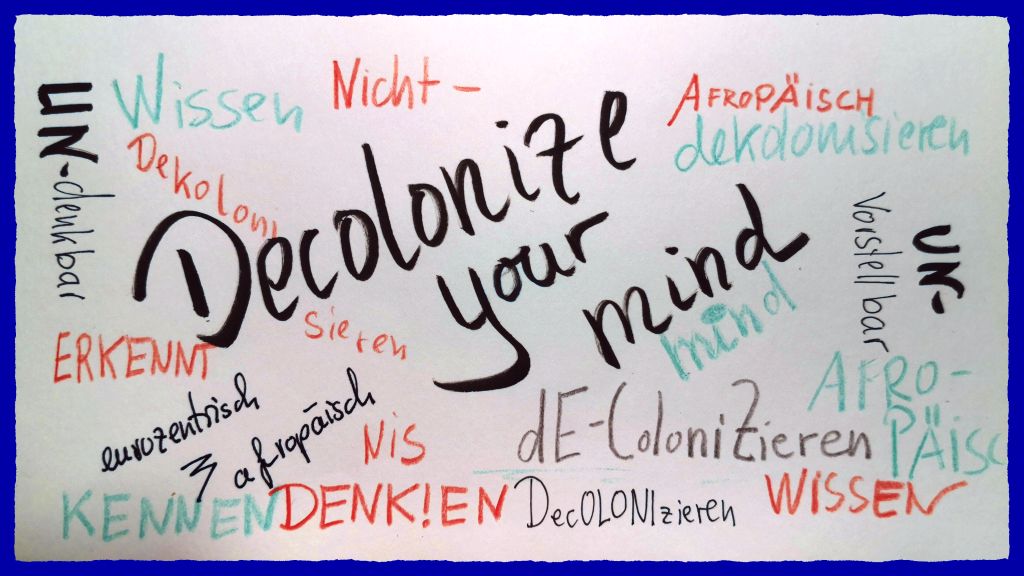 UN-denkbar
Wissen
Nicht-
AFROPÄISCH
dekolonisieren
Dekoloni
sieren
Decolonize
your
mind
mind
Vorstellbar
UN-
ERKENNT
NIS
eurozentrisch
afropäisch
dE-ColoniZieren
AFRO-
PÄISC
KENNEN
DENK!EN
DecOLONIzieren
WISSEN